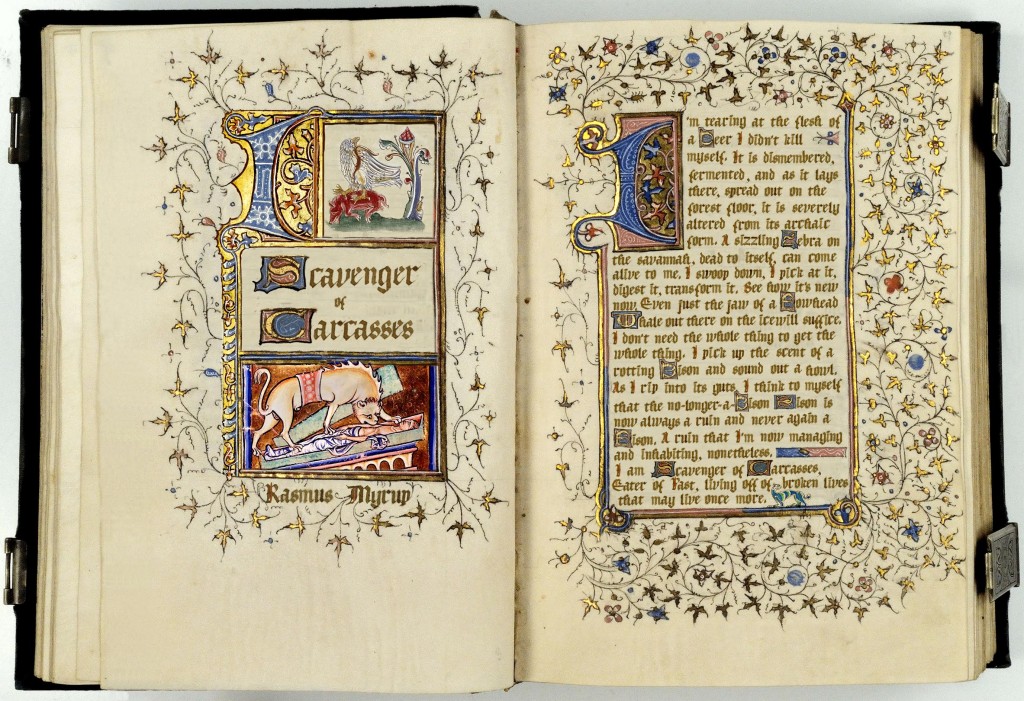 Scavenger
of
Carcasses
Rasmus Myrup
I'm tearing at the flesh of
a Deer I didn't kill
myself. It is dismembered,
fermented, and as it lays
there, spread out on the
forest floor, it is severely
altered from its archaic
form. A sizzling Zebra on
the savannah, dead to itself, can come
alive to me. I swoop down, I pick at it,
digest it, transform it. See how it's new
now. Even just the jaw of a Bowhead
Whale out there on the icewill suffice.
I don't need the whole thing to get the
whole thing. I pick up the scent of a
rotting Bison and sound out a howl.
As I rip into its guts, I think to myself
that the no-longer-a-Bison Bison is
now always a ruin and never again a
Bison. A ruin that I'm now managing
and inhabiting, nonetheless,
I am Scavenger of Carcasses,
Eater of Past, living off of broken lives
that may live once more.